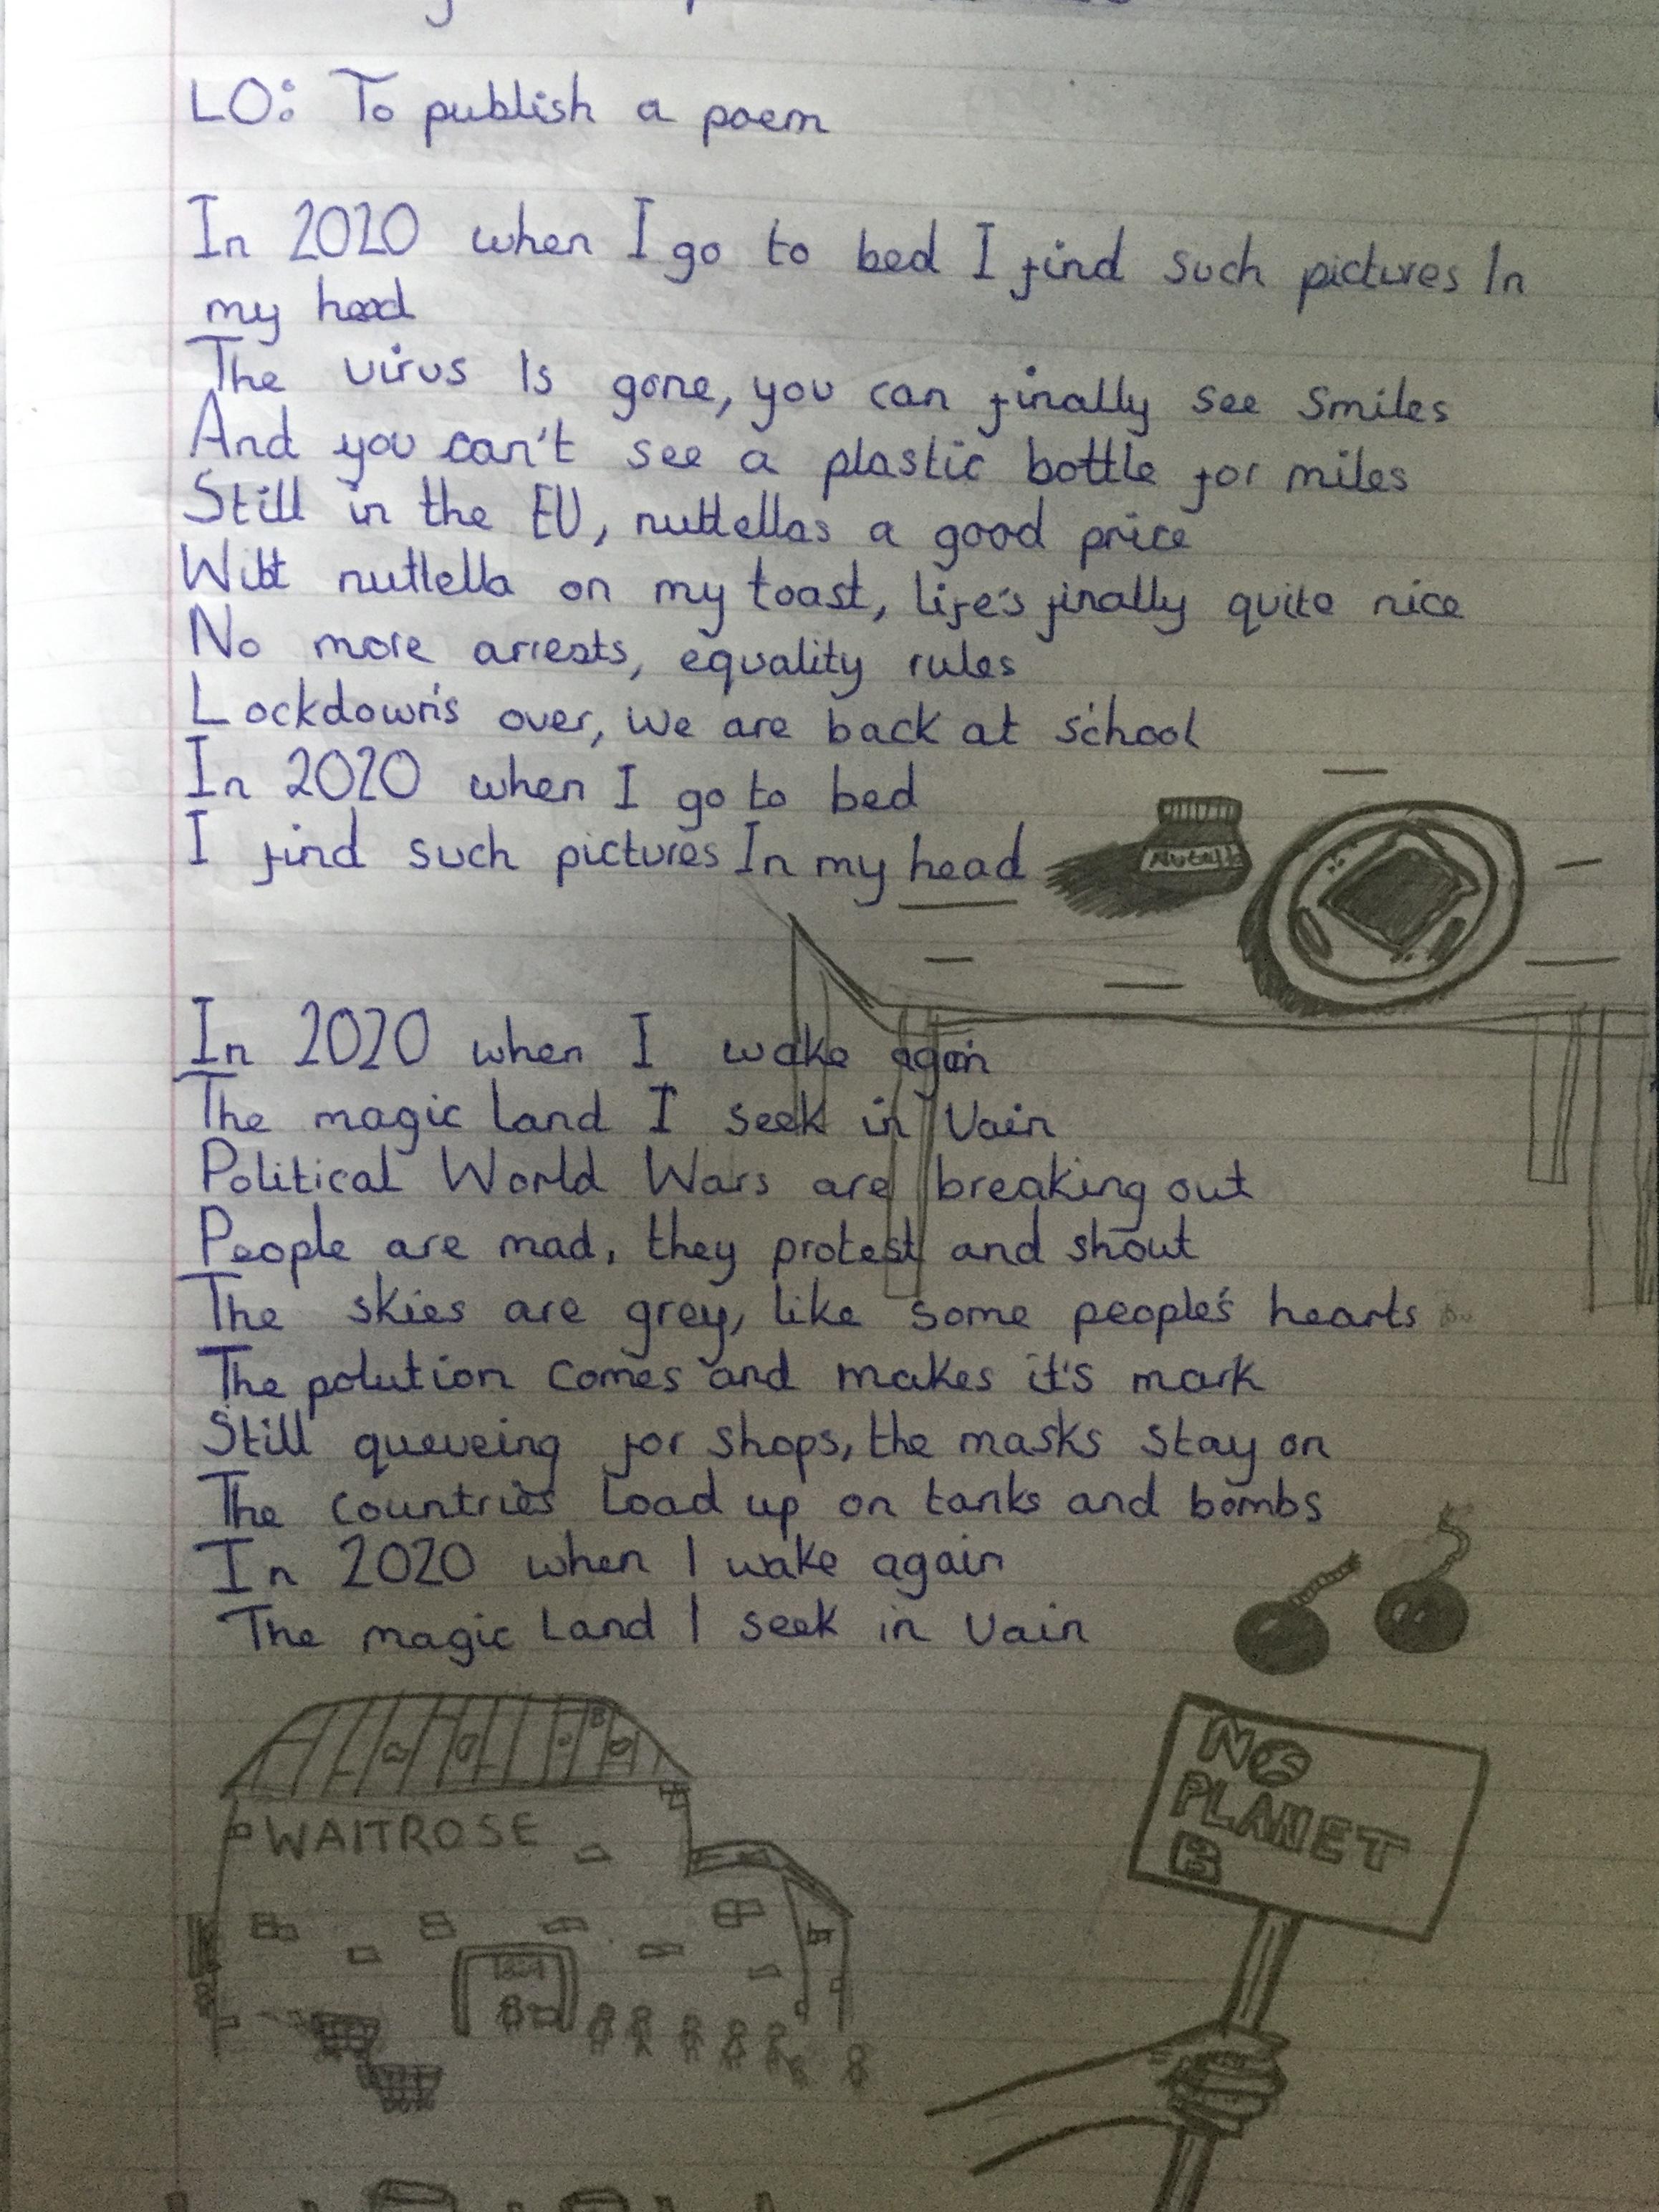 LO: To publish a poem
In 2020 when I go to bed I find such pictures In
my head
The virus Is gone, you can finally see smiles
And you can't see a plastic bottle for miles
Still in the EU, nuttellas a good price
Witt nuttella on my toast, life's finally quite nice
No more arrests, equality rules
Lockdown's over, we are back at school
In 2020 when I go to bed
I find such pictures In my head
Nutella
In 2020 when I wake again
The magic land I seek in vain
Political World Wars are breaking out
People are mad, they protest and shout
The skies are grey, like some people's hearts
The polution comes and makes it's mark
Still queueing for shops, the masks stay on
The countries load up on tanks and bombs
In 2020 when I wake again
The magic land I seek in vain
NO
PLANET
B
WAITROSE